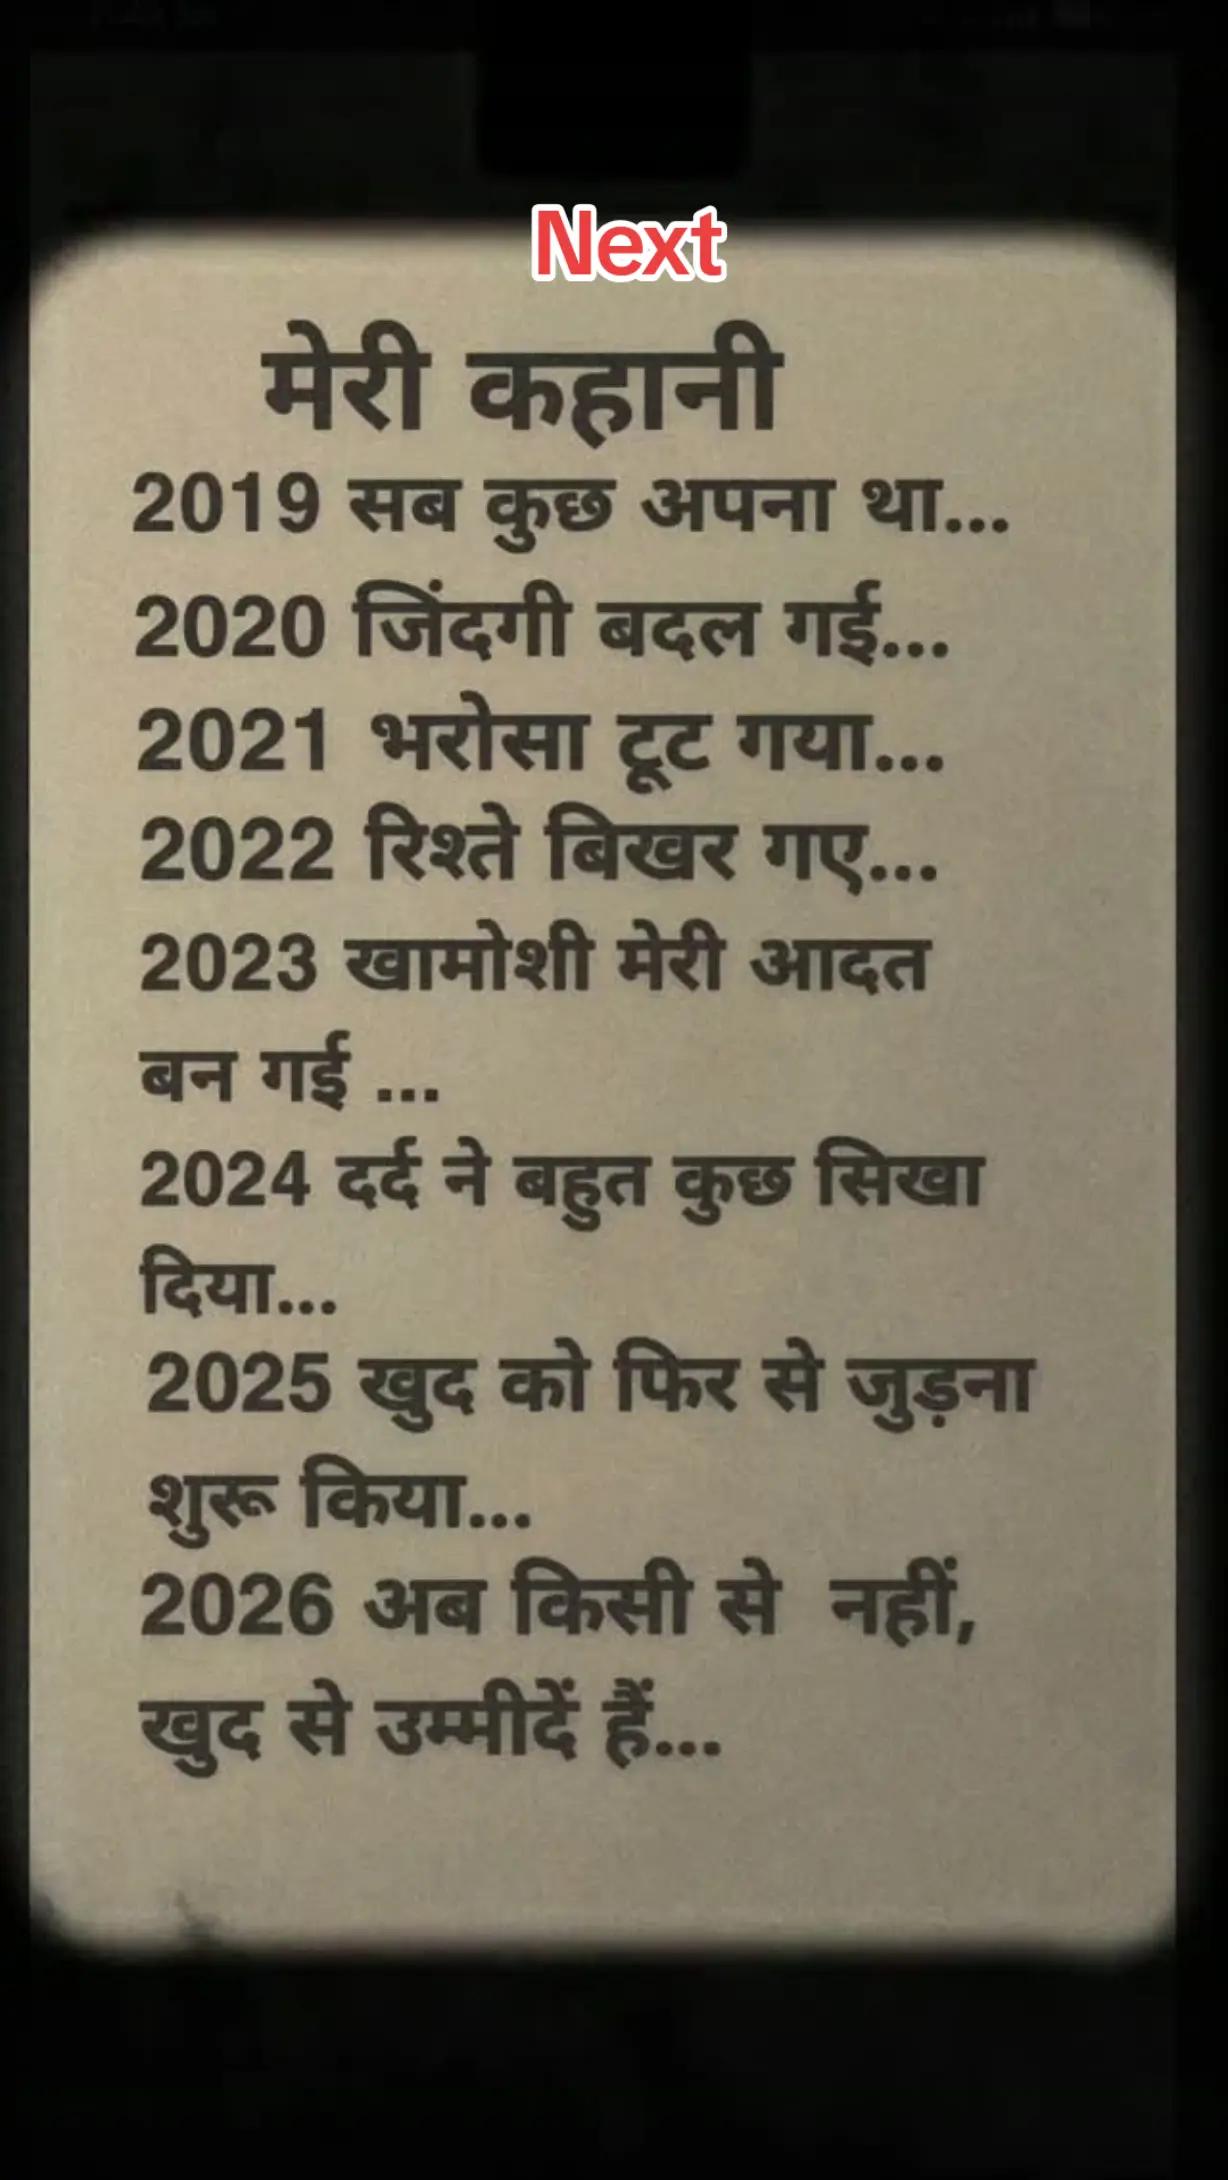 Next
मेरी कहानी
2019 सब कुछ अपना था...
2020 जिंदगी बदल गई...
2021 भरोसा टूट गया...
2022 रिश्ते बिखर गए...
2023 खामोशी मेरी आदत
बन गई ...
2024 दर्द ने बहुत कुछ सिखा
दिया...
2025 खुद को फिर से जुड़ना
शुरू किया...
2026 अब किसी से नहीं,
खुद से उम्मीदें हैं...